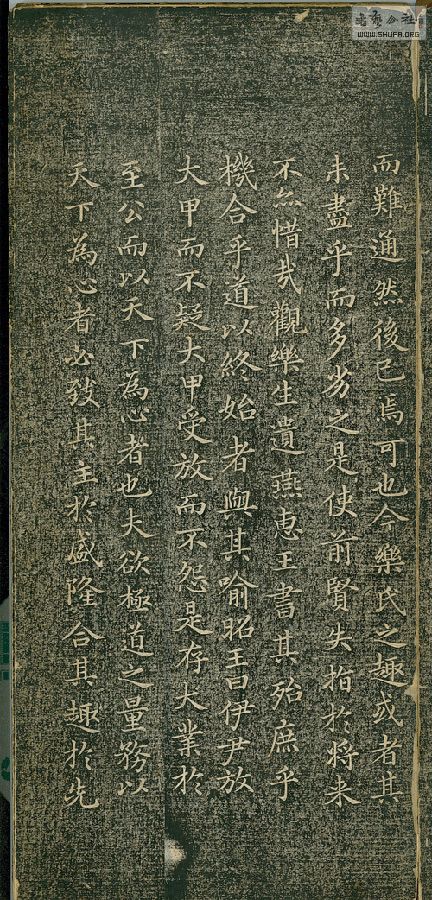 而難通然後已焉可也今樂氏之趣或者其
未盡乎而多劣之是使前賢失指於将来
不亦惜哉觀樂生遺燕惠王書其殆庶乎
機合乎道以終始者與其喻昭王曰伊尹放
大甲而不疑大甲受放而不怨是存大業於
至公而以天下為心者也夫欲極道之量務以
天下為心者必致其主於盛隆合其趣於先
WWW.SHUFA.ORG